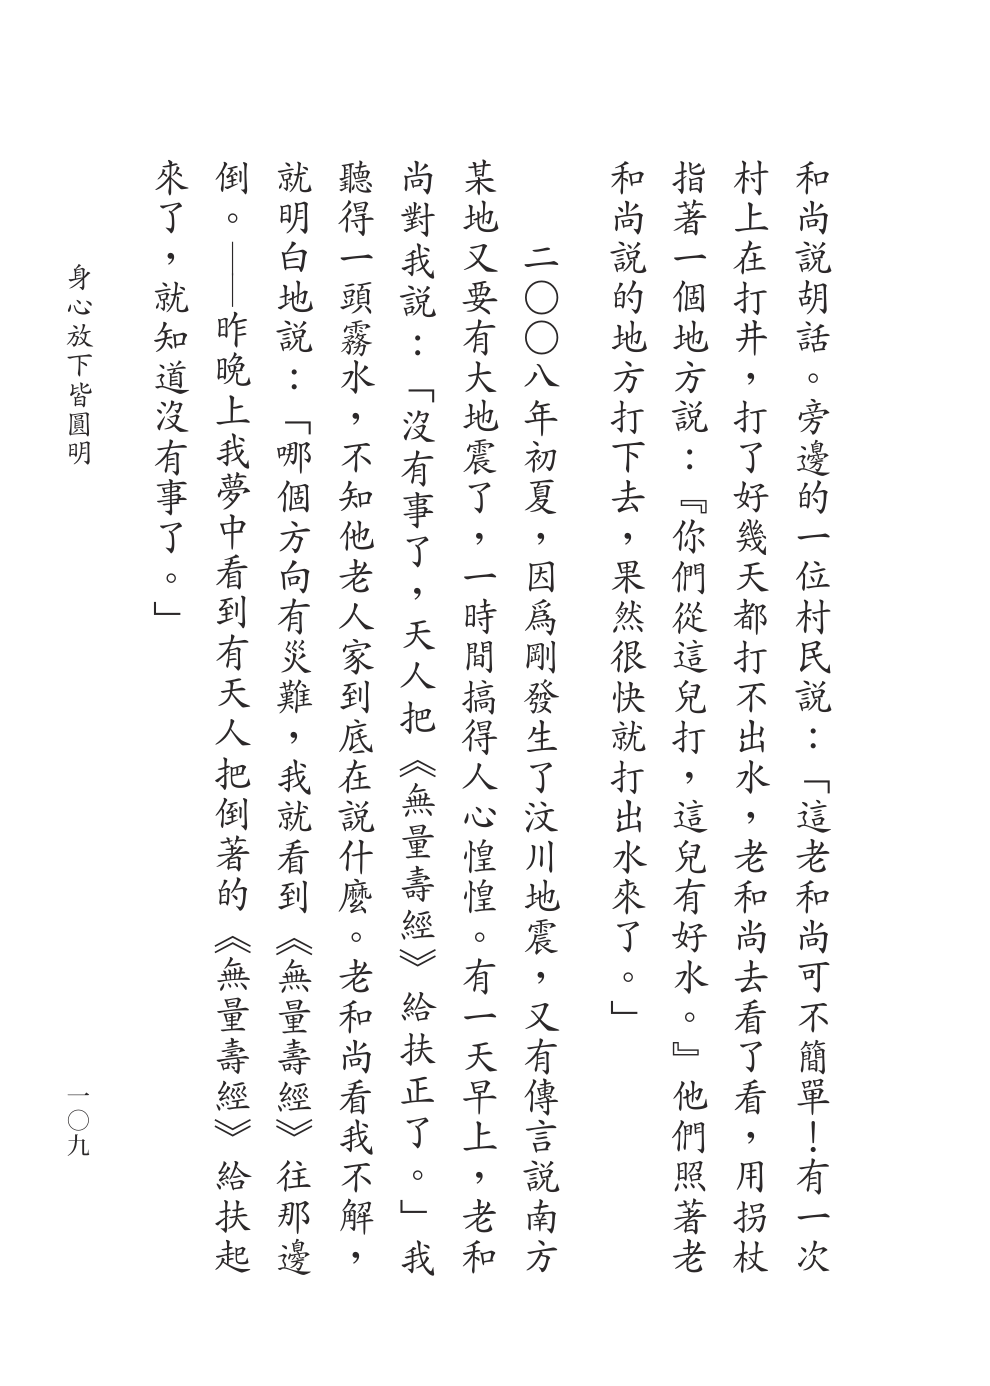 和尚說胡話。旁邊的一位村民說：「這老和尚可不簡單！有一次
村上在打井，打了好幾天都打不出水，老和尚去看了看，用拐杖
指著一個地方說：『你們從這兒打，這兒有好水。』他們照著老
和尚說的地方打下去，果然很快就打出水來了。」
二〇〇八年初夏，因爲剛發生了汶川地震，又有傳言說南方
某地又要有大地震了，一時間搞得人心惶惶。有一天早上，老和
尚對我說：「沒有事了，天人把《無量壽經》給扶正了。」我
聽得一頭霧水，不知他老人家到底在說什麼。老和尚看我不解，
就明白地說：「哪個方向有災難，我就看到《無量壽經》往那邊
倒。——昨晚上我夢中看到有天人把倒著的《無量壽經》給扶起
來了，就知道沒有事了。」
身心放下皆圓明
一〇九